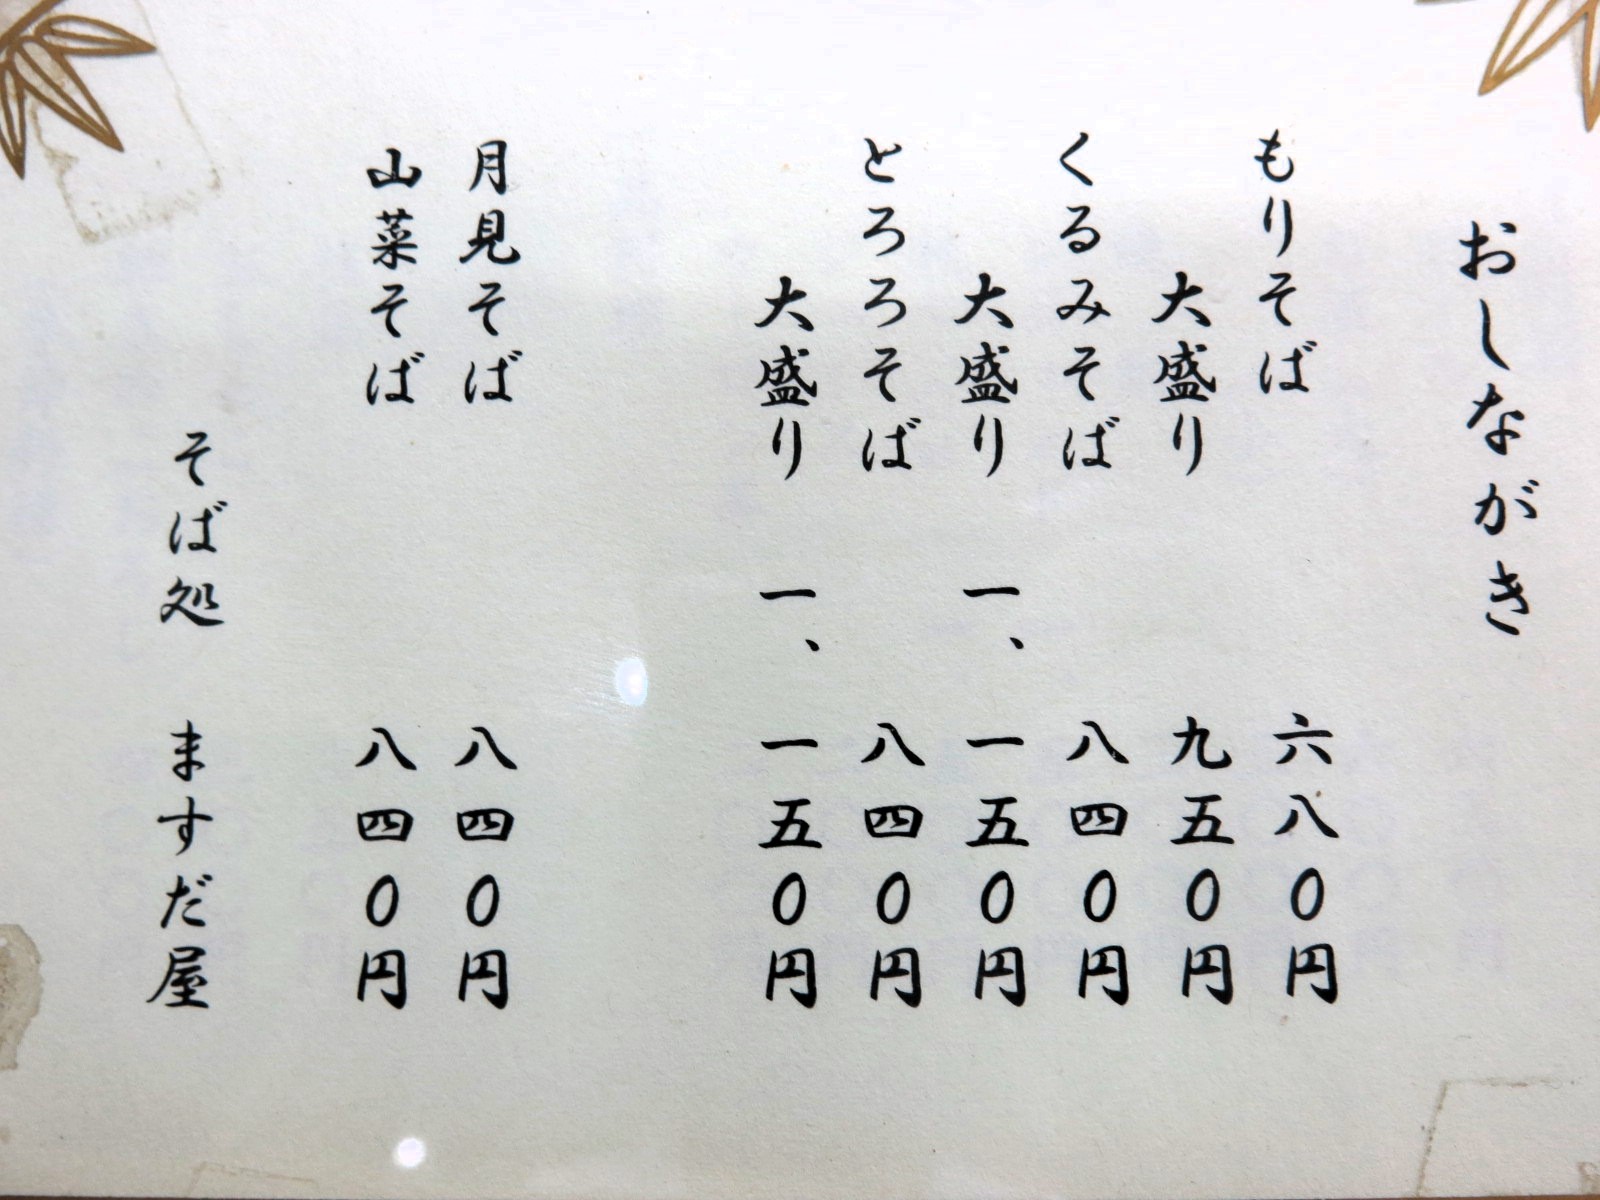 おしながき
もりそば 六八０円
大盛り 九五０円
くるみそば 八四０円
大盛り 一、一五０円
とろろそば 八四０円
大盛り 一、一五０円
月見そば 八四０円
山菜そば 八四０円
そば処 ますだ屋